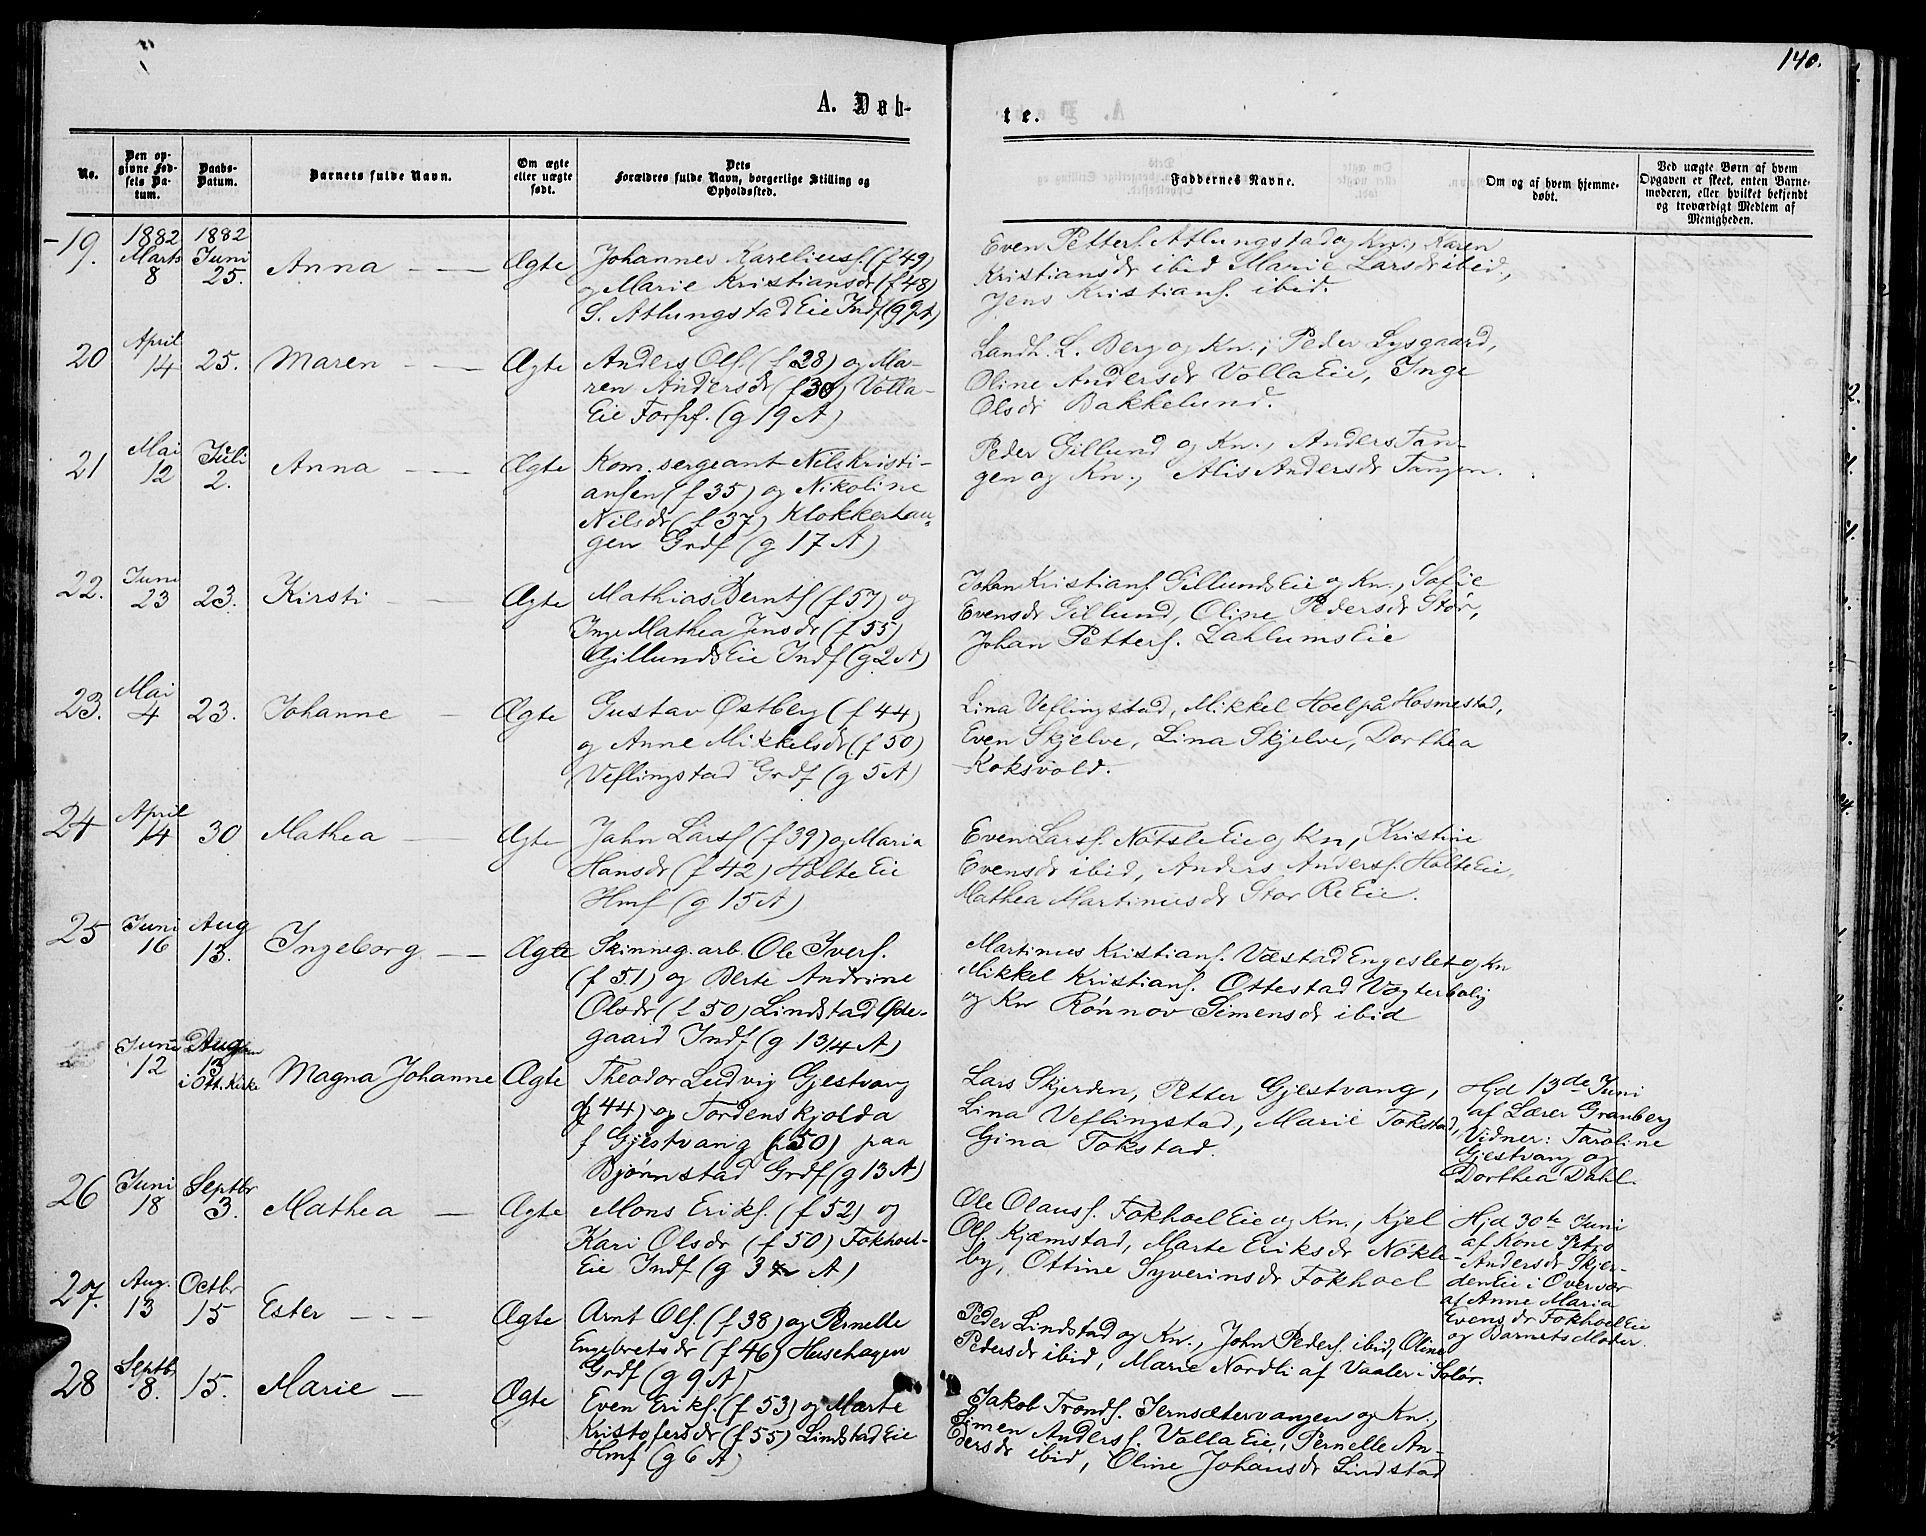 140.
A. Døb-
te.
No.
Den op-
givne Fød-
sels Da-
tum.
Daabs-
Datum.
Barnets fulde Navn.
Om ægte
eller uægte
født.
Dets
Forældres fulde Navn, borgerlige Stilling og
Opholdssted.
Faddernes Navne.
Om og af hvem hjemme-
døbt.
Ved uægte Børn af hvem
Opgaven er skeet, enten Barne-
moderen, eller hvilket bekjendt
og troværdigt Medlem af
Menigheden.
19. 1882 Marts 8 1882 Juni 25. Anna Ægte
Johannes Kareliusf. (f 49)
og Marie Kristiansdr (f 48)
S. Atlungstad Eie Indf (g 9 A)
Even Petterf. Atlungstad og Kn., Karen
Kristiansdr ibid Marie Larsdr ibid,
Jens Kristianf. ibid.
20 April 14 25. Maren Ægte
Anders Olf. (f 28) og Ma-
ren Andersdr (f 30) Volla-
Eie Forpf. (g 19 A)
Landh. L. Berg og Kn., Peder Lysgaard,
Oline Andersdr Volla Eie, Inge
Olsdr Bakkelund.
21 Mai 12 Juli 2. Anna Ægte
Kom. sergeant Nils Kristi-
ansen (f 35) og Nikoline
Nilsdr (f 37) Klokkerhau-
gen Grdf (g 17 A)
Peder Gillund og Kn., Anders Tan-
gen og Kn., Alis Andersdr Tangen.
22. Juni 23 23. Kirsti Ægte
Mathias Berntf (f 57) og
Inge Mathea Jensdr (f 55)
Gjillunds Eie Indf (g 2 A)
Johan Kristianf. Gillunds Eie og Kn., Sofie
Evensdr Gillund, Oline Pedersdr Stør,
Johan Petterf. Lahlums Eie
23. Mai 4 23. Johanne Ægte
Gustav Østberg (f 44)
og Anne Mikkelsdr (f 50)
Veflingstad Grdf (g 5 A)
Lina Veflingstad, Mikkel Hoel på Hosmestad,
Even Skjelve, Lina Skjelve, Dorthea
Koksvold.
24 April 14 30 Mathea Ægte
Jahn Larsf (f 39) og Maria
Hansdr (f 42) Holte Eie
Hmf (g 15 A)
Even Larsf. Nøtsle Eie og Kn, Kristine
Evensdr ibid, Anders Andersf. Holte Eie,
Mathea Martinusdr Stor Re Eie.
25 Juni 16 Aug 13. Ingeborg Ægte
Skinneg. arb. Ole Iverf.
(f 51) og Berte Andrine
Olsdr (f 50) Lindstad Øde-
gaard Indf (g 13/4 A)
Martinus Kristianf. Væstad Engeslet og Kn
Mikkel Kristianf. Ottestad Vogterbolig
og Kn Rønnov Simensdr ibid
Juni 12 Aug 13 i Ott. Kirke Magna Johanne Ægte
Theodor Ludvig Gjestvang
(f 44) og Tordenskjolda
f Gjestvang (f 50) paa
Bjørnstad Grdf (g 13 A)
Lars Skjerden, Petter Gjestvang,
Lina Veflingstad, Marie Tokstad,
Gina Tokstad.
Hjd 13de Juni
af Lærer Granberg
Vidner: Taroline
Gjestvang og
Dorthea Dahl.
26 Juni 18 Septbr 3. Mathea Ægte
Mons Erikf. (f 52) og
Kari Olsdr (f 50) Fokhoel-
Eie Indf (g 3 A)
Ole Olausf. Fokhoel Eie og Kn., Kjel
Olf. Kjæmstad, Marte Eriksdr Nøkle-
by, Ottine Syverinsdr Fokhoel
Hjd 30te Juni
af Kone Petro
Andersdr Skjer-
den Eie i Overvær
af Anne Maria
Evensdr Fokhoel Eie
og Barnets Moder.
27. Aug. 13 Octbr 15 Ester Ægte
Arnt Olf. (f 38) og Pernelle
Engebretsdr (f 46) Hersehagen
Grdf (g 9 A)
Peder Lindstad og Kn., John Pederf. ibid, Oline
Pedersdr ibid, Marie Nordli af Vaaler i Solør.
28 Septbr 8. 15. Marie Ægte
Even Erikf. (f 53) og Marte
Kristofersdr (f 55) Lindstad Eie
Hmf (g 6 A)
Jakob Trondf. Jernsætervangen og Kn.,
Simen Andersf. Volla Eie, Pernelle An-
dersdr ibid, Oline Johansdr Lindstad